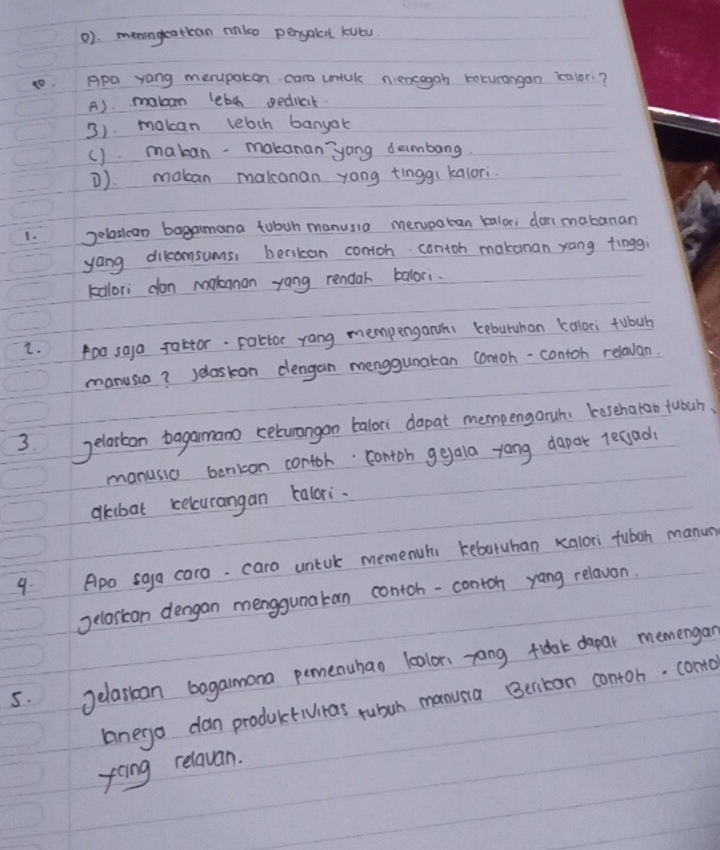 D). meningkatkan risiko penyakit kuku.
10. Apa yang merupakan cara untuk mencegah kekurangan kalori?
A). makan lebih sedikit.
B). makan lebih banyak
C). makan - makanan yang seimbang.
D). makan makanan yang tinggi kalori.
1. Jelaskan bagaimana tubuh manusia merupakan kalori dari makanan
yang dikomsumsi berikan contoh - contoh makanan yang tinggi
kalori dan makanan yang rendah kalori.
2. Apa saja faktor - faktor yang mempengaruhi kebutuhan kalori tubuh
manusia? Jelaskan dengan menggunakan contoh - contoh relavan.
3. Jelaskan bagaimana kekurangan kalori dapat mempengaruhi kesehatan tubuh
manusia berikan contoh - contoh gejala yang dapat terjadi
akibat kekurangan kalori.
4. Apa saja cara - cara untuk memenuhi kebutuhan kalori tubuh
Jelaskan dengan menggunakan contoh - contoh yang relavan.
5. Jelaskan bagaimana pemenuhan kalori yang tidak dapat
kinerja dan produktivitas tubuh manusia Berikan contoh -
yang relavan.